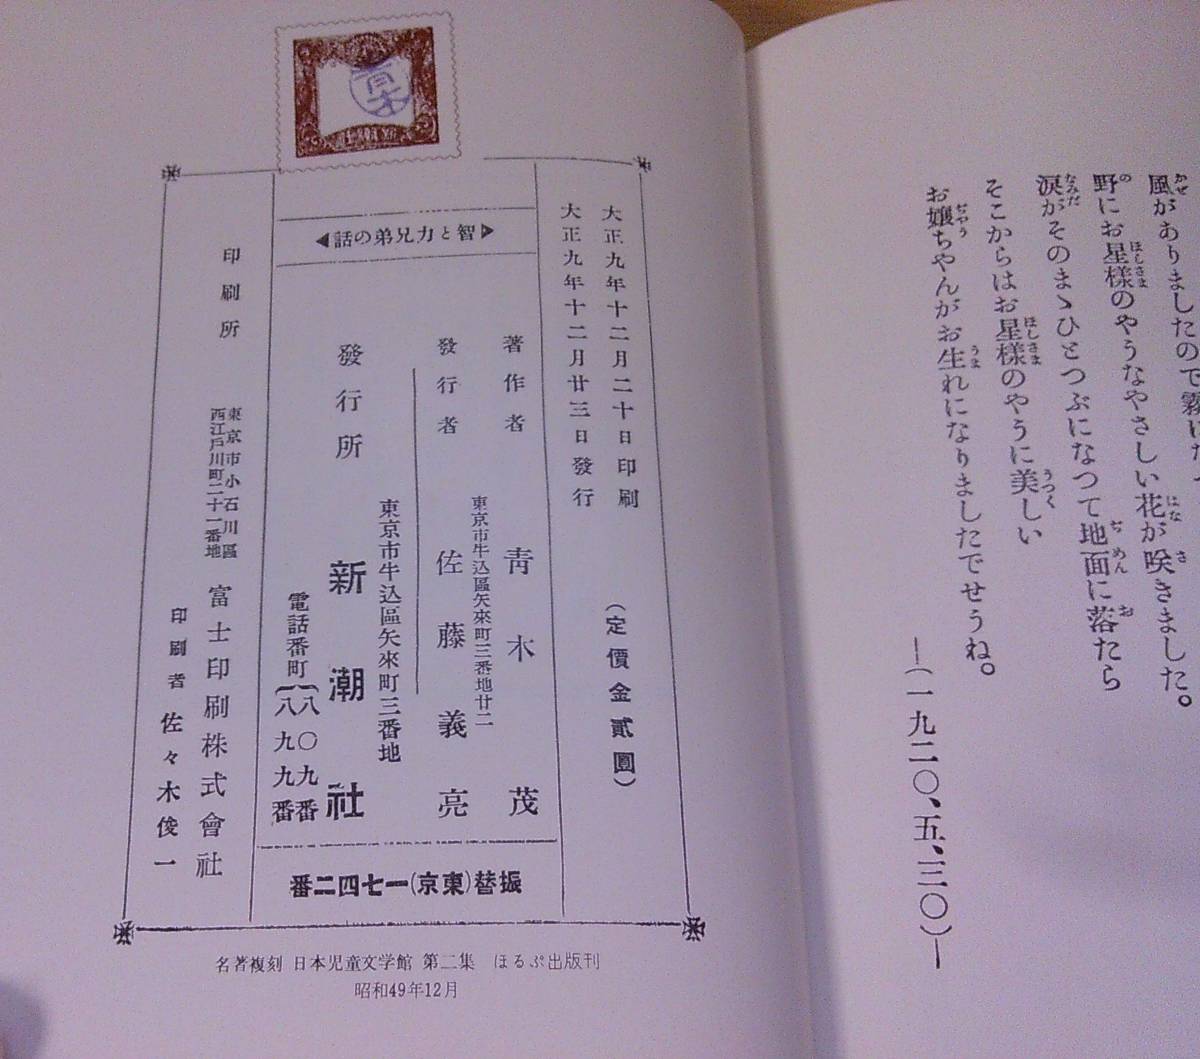 風がありましたので霧
野にお星様のやうなやさしい花が咲きました。
涙がそのまゝひとつぶになつて地面に落たら
そこからはお星様のやうに美しい
お嬢ちやんがお生れになりましたでせうね。
―(一九二〇、五、三〇)―
大正九年十二月二十日印刷
大正九年十二月廿三日發行
(定價金貳圓)
▶智と力兄弟の話◀
著作者 靑木茂
東京市牛込區矢來町三番地廿二
發行者 佐藤義亮
發行所
東京市牛込區矢來町三番地
新潮社
電話番町{八〇九番
八九九番
振替(東京)一七四二番
印刷所
東京市小石川區
西江戸川町二十一番地
富士印刷株式會社
印刷者 佐々木俊一
名著複刻 日本児童文学館 第二集 ほるぷ出版刊
昭和49年12月